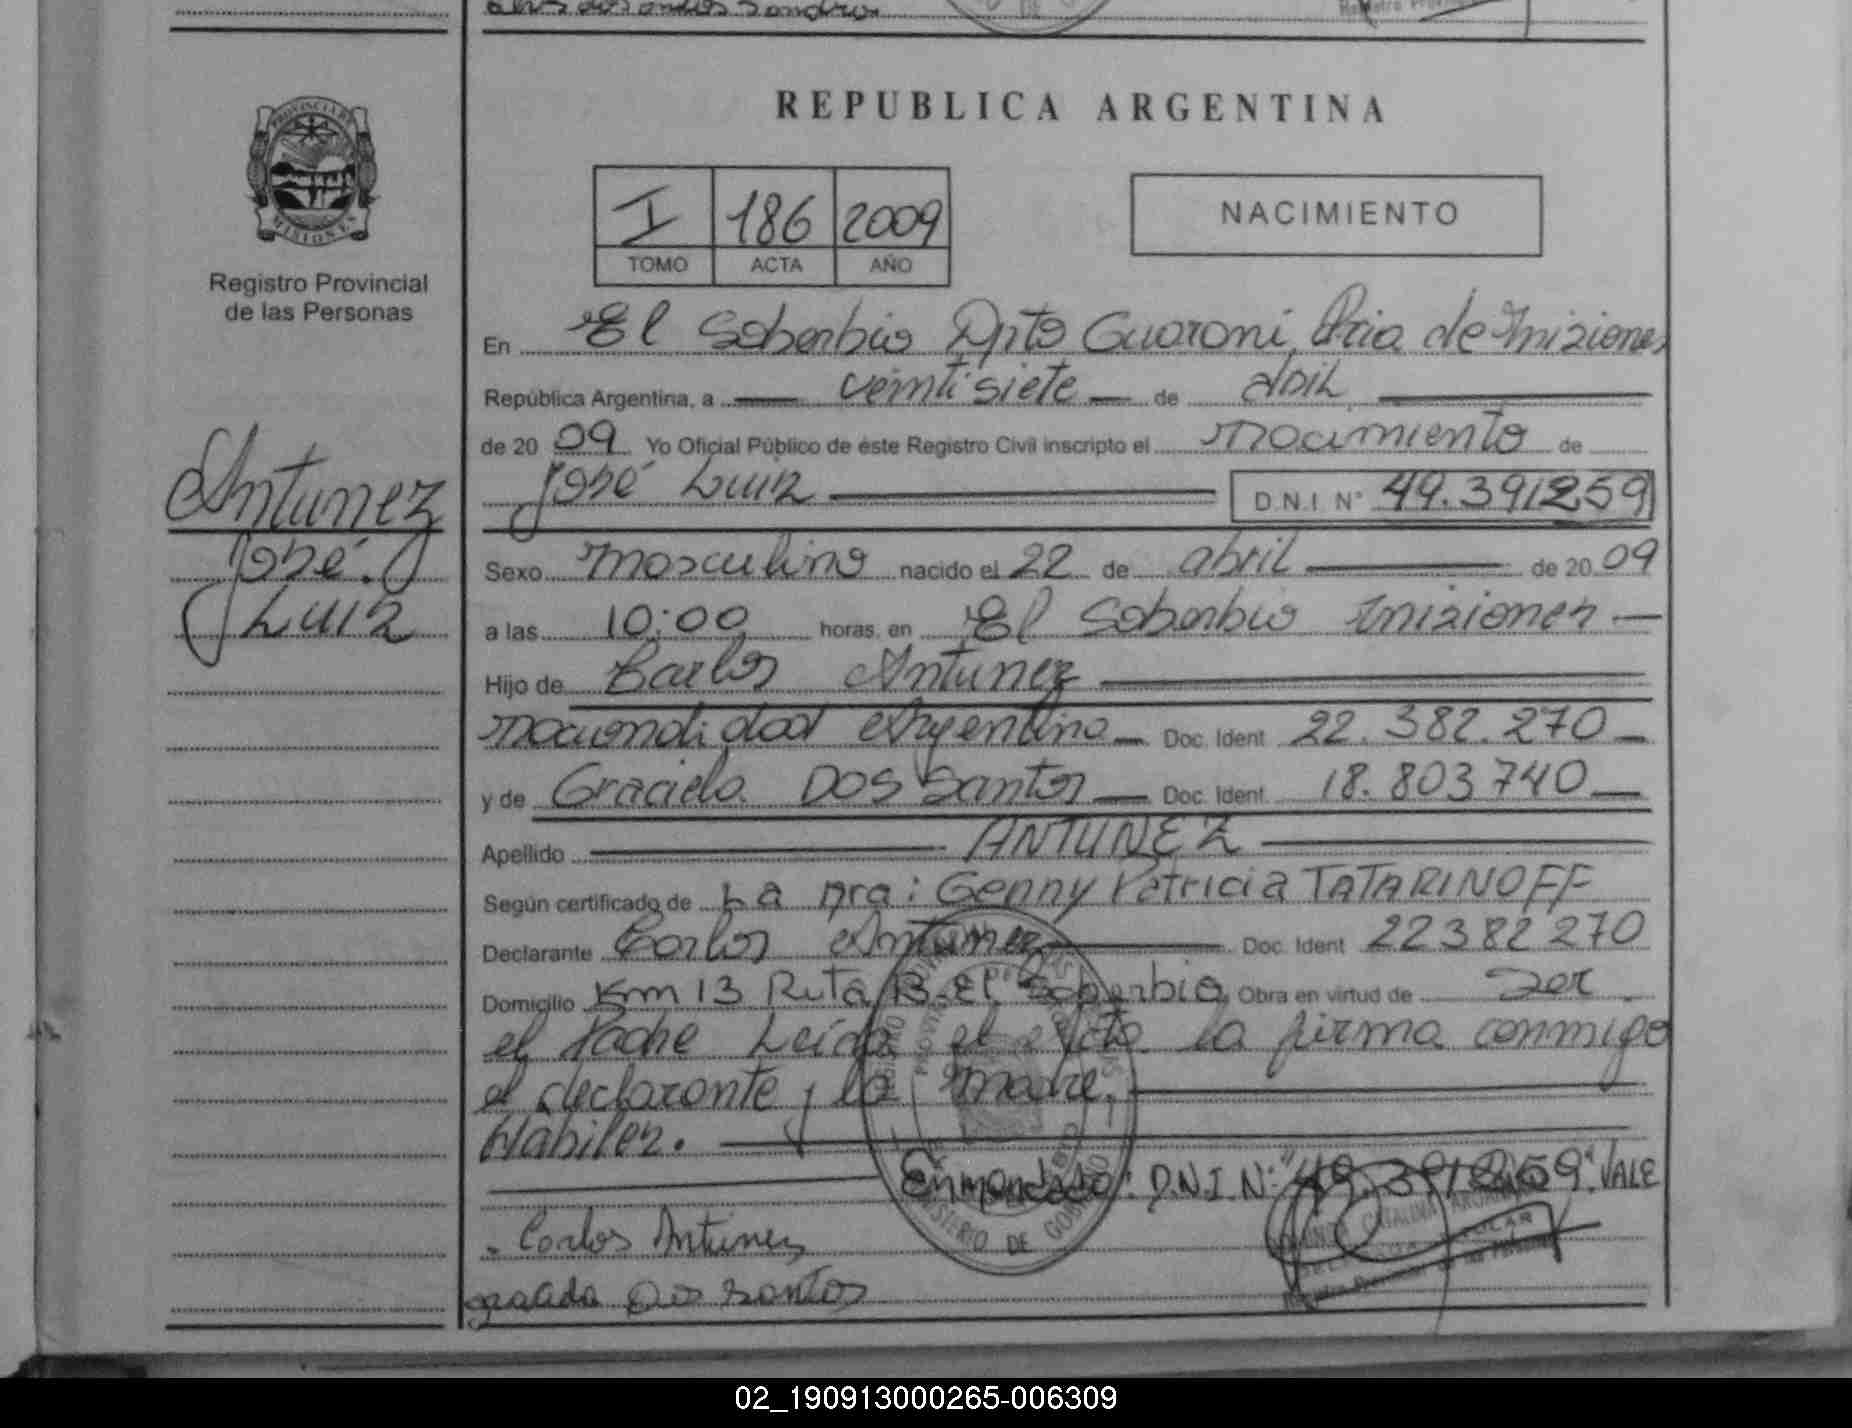 REPUBLICA ARGENTINA
PROVINCIA DE
MISIONES
Registro Provincial
de las Personas
I 186 2009
TOMO ACTA AÑO
NACIMIENTO
En El Soberbio Dpto Guaraní, Pcia de Misiones
República Argentina, a veintisiete de abril
de 2009 Yo Oficial Público de éste Registro Civil inscripto el nacimiento de
José Luiz D.N.I. N° 49.391259
Antunez
José
Luiz
Sexo masculino nacido el 22 de abril de 2009
a las 10:00 horas, en El Soberbio Misiones
Hijo de Carlos Antunez
nacionalidad Argentina Doc. Ident. 22.382.270
y de Graciela DOS Santos Doc. Ident. 18.803740
Apellido ANTUNEZ
Según certificado de La Dra: Genny Patricia TATARINOFF
Declarante Carlos Antunez Doc. Ident 22382270
Domicilio Km 13 Ruta 13 El Soberbio Obra en virtud de ser
el Padre Leída el Acta la firma conmigo
el declarante y la madre.
Habiles.
Enmendado: D.N.I. N: "49.391259". VALE
MINISTERIO DE GOBIERNO
Carlos Antunez
graciela Dos Santos
02_190913000265-006309